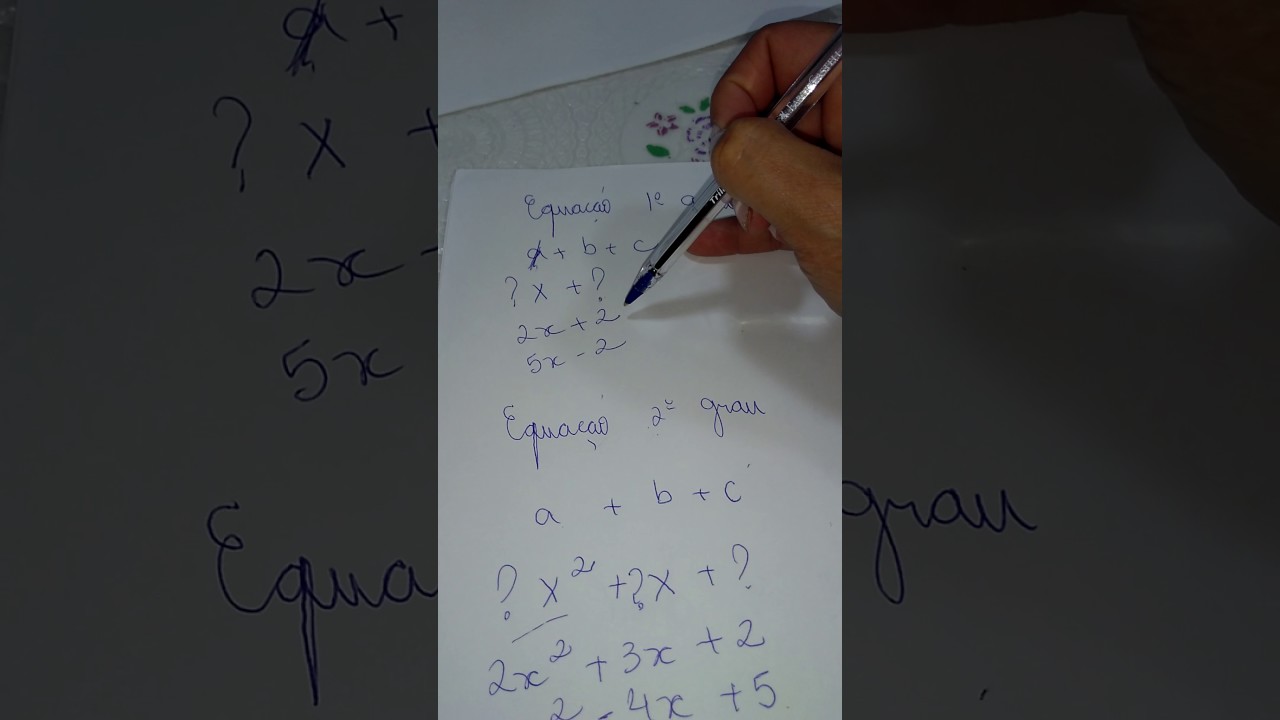 Equação 1º
a + b + c
? x + ?
2x + 2
5x - 2
Equação 2º grau
a + b + c
? x² + ?x + ?
2x² + 3x + 2
2 - 4x + 5